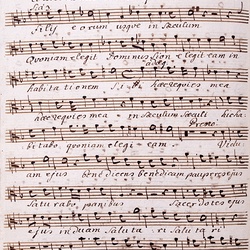 Filij eorum usque in Sæculum
Quoniam elegit Dominus Sion elegit eam in
habitationem Sibi hæc requies mea
hæc requies mea in Sæculum Sæculi hicha
bitabo, quoniam elegi eam Vidu
am ejus benedicens benedicam pauperes ejus
Saturabo, panibus Sacerdotes ejus
ejus induam Salutari Salutari